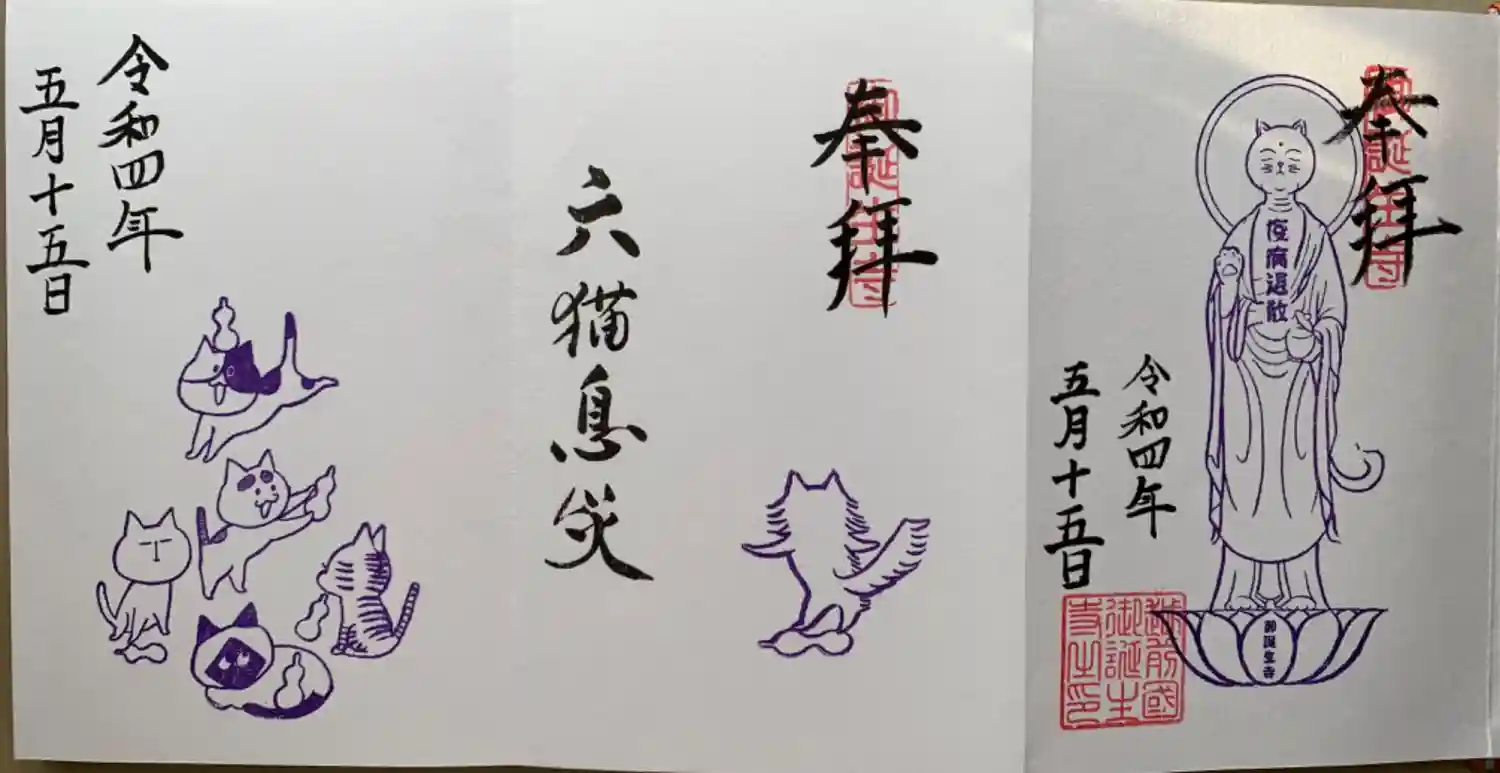 奉拝
御誕生寺
疫病退散
令和四年
五月十五日
御誕生寺
越前國
御誕生
寺之印
奉拝
御誕生寺
六猫息災
令和四年
五月十五日